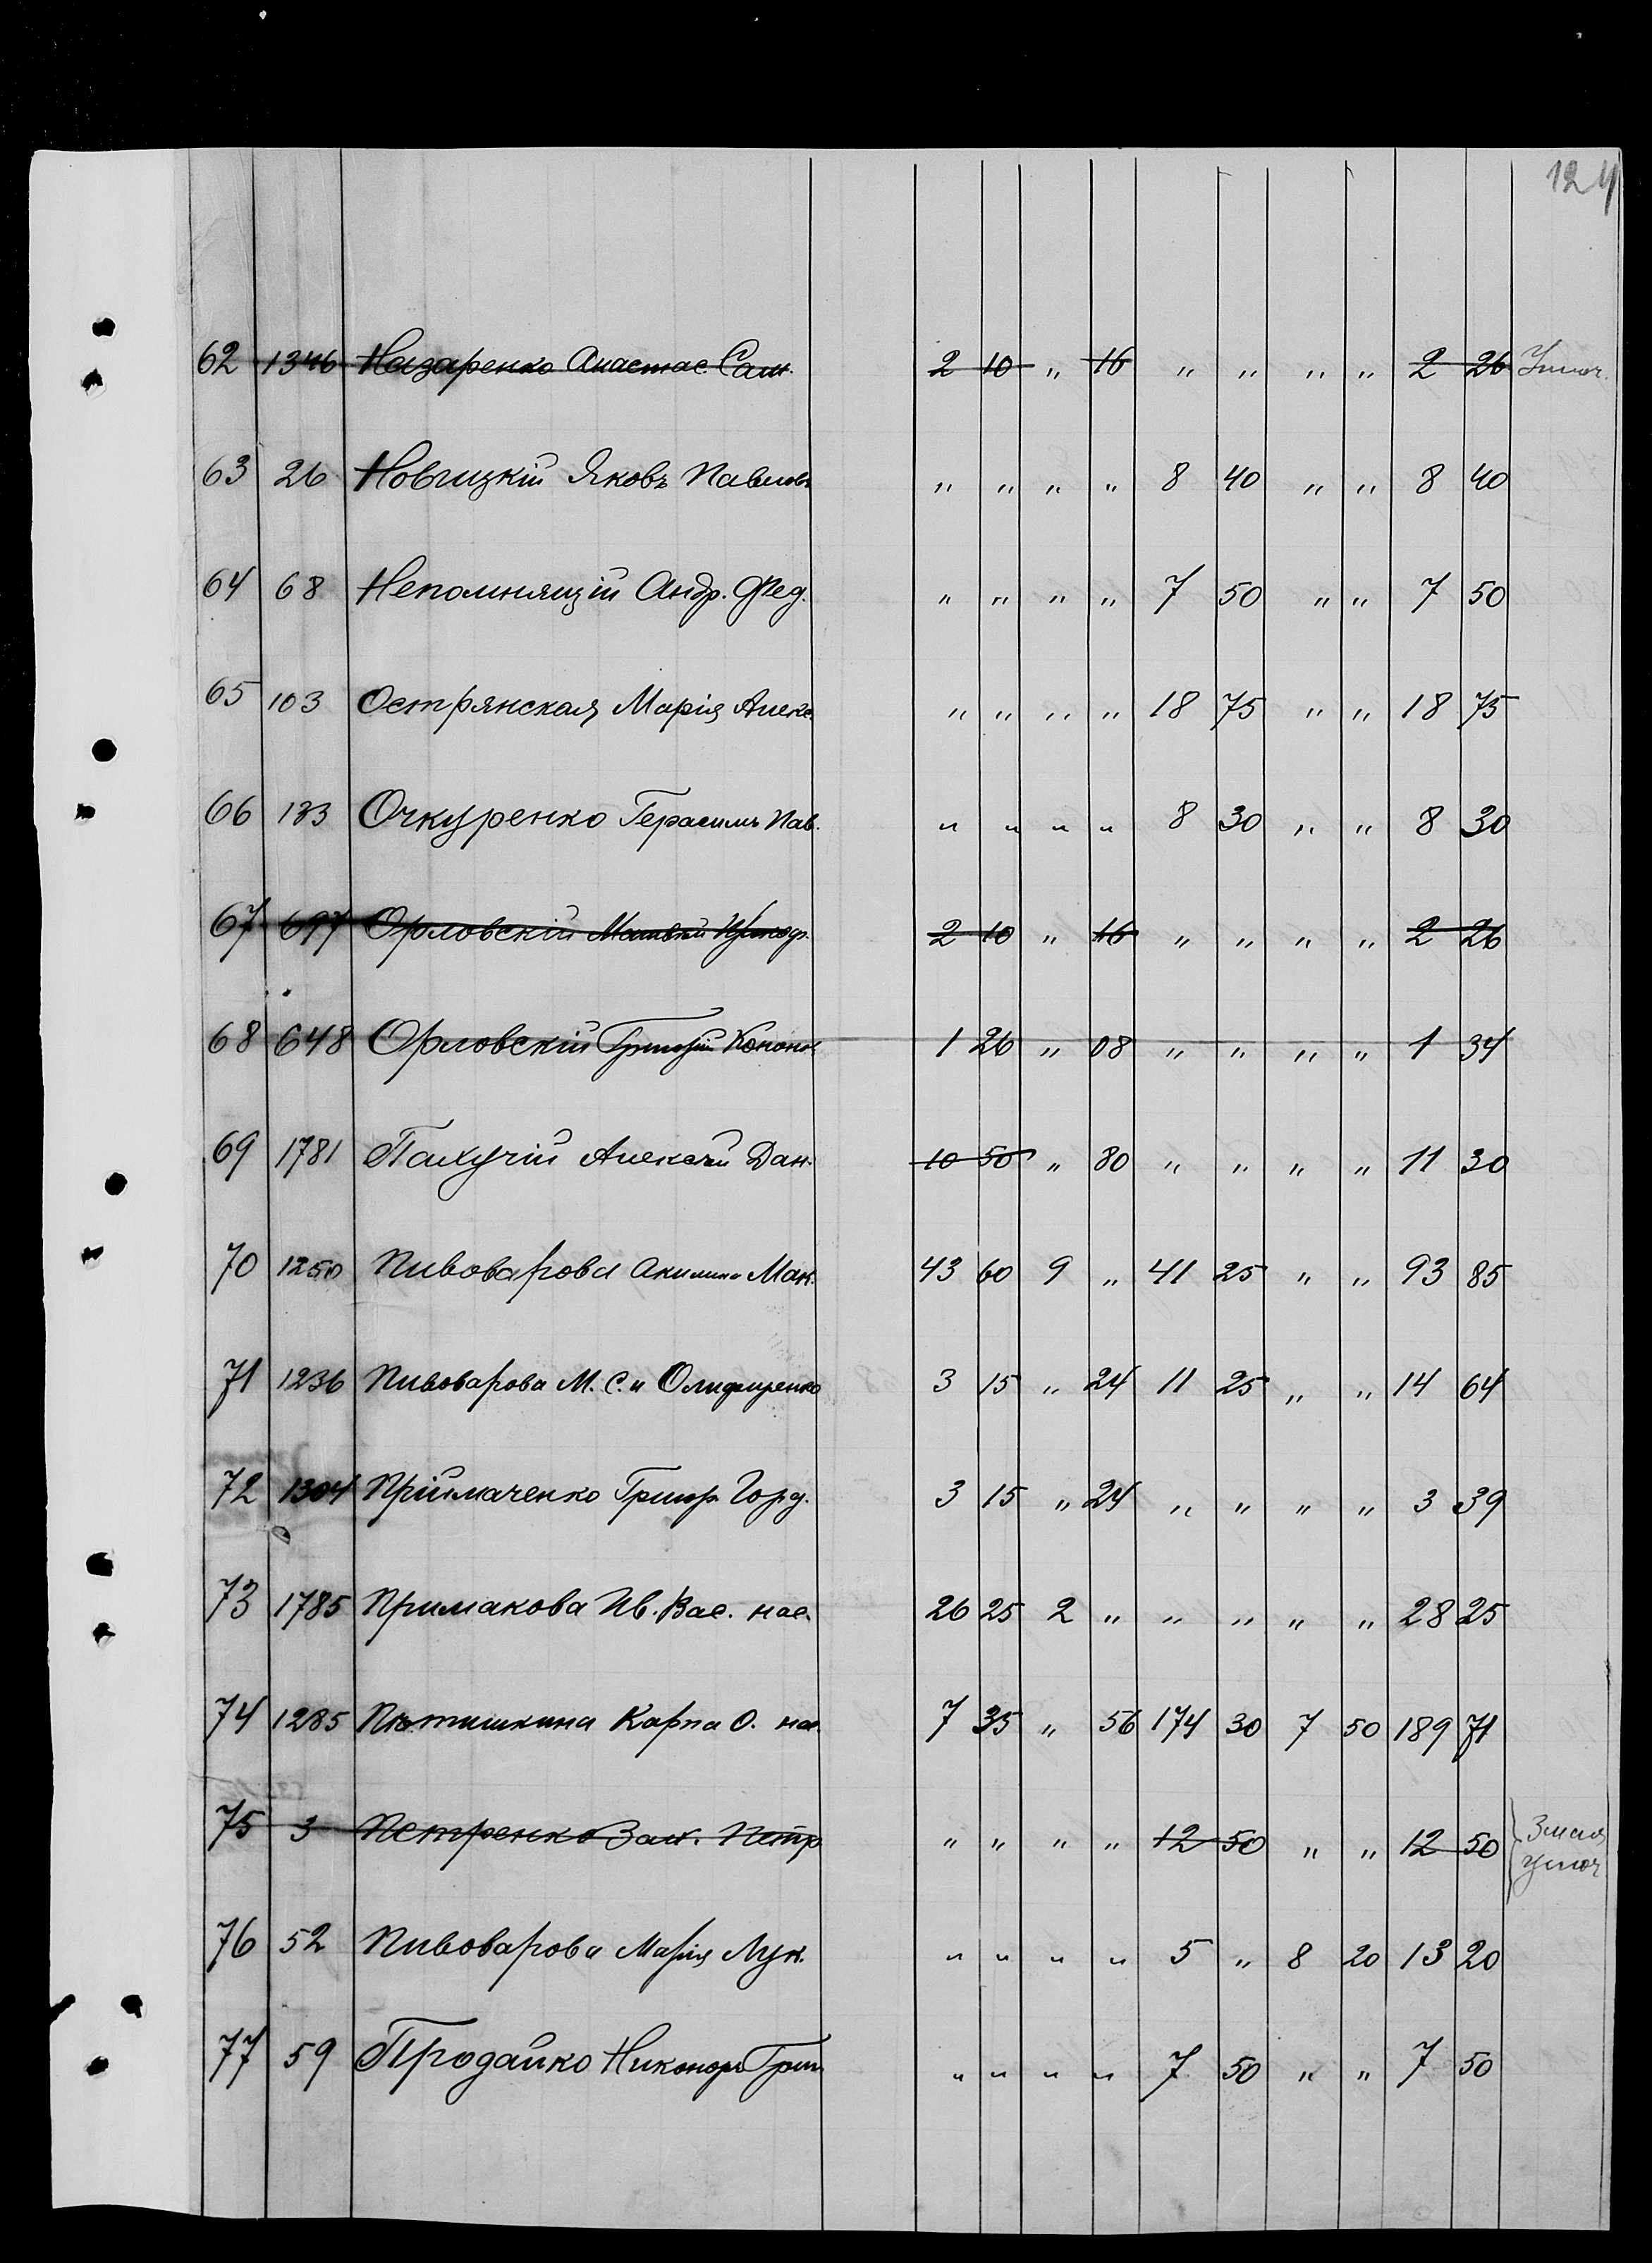 124
62 1346 Назаренко Анастас. Сам. 2 10 " 16 " " " " 2 26
63 26 Новицкій Яковъ Павлов. " " " " 8 40 " " 8 40
64 68 Непомнящій Андр. Фед. " " " " 7 50 " " 7 50
65 103 Острянская Марія Алекс. " " " " 18 75 " " 18 75
66 133 Очкуренко Герасимъ Пав. " " " " 8 30 " " 8 30
67 697 Орловскій 2 10 " 16 " " " " 2 26
68 648 Орловскій Григорій Конон. 1 26 " 08 " " " " 1 34
69 1781 Пахучій Алексѣй Дан. 10 50 " 80 " " " " 11 30
70 1250 Пивоварова Акилина Мак. 43 60 9 " 41 25 " " 93 85
71 1236 Пивоварова М. С. и Олиференко 3 15 " 24 11 25 " " 14 64
72 1304 Пріймаченко Григор. Горд. 3 15 " 24 " " " " 3 39
73 1785 Примакова Ив. Вас. нас. 26 25 2 " " " " " 28 25
74 1285 Пѣтишкина Карпа О. нас. 7 35 " 56 174 30 7 50 189 71
75 3 Петренко Зах. Петр. " " " " 12 50 " " 12 50
76 52 Пивоварова Марія Лук. " " " " 5 " 8 20 13 20
77 59 Продайко Никоноръ Григ. " " " " 7 50 " " 7 50